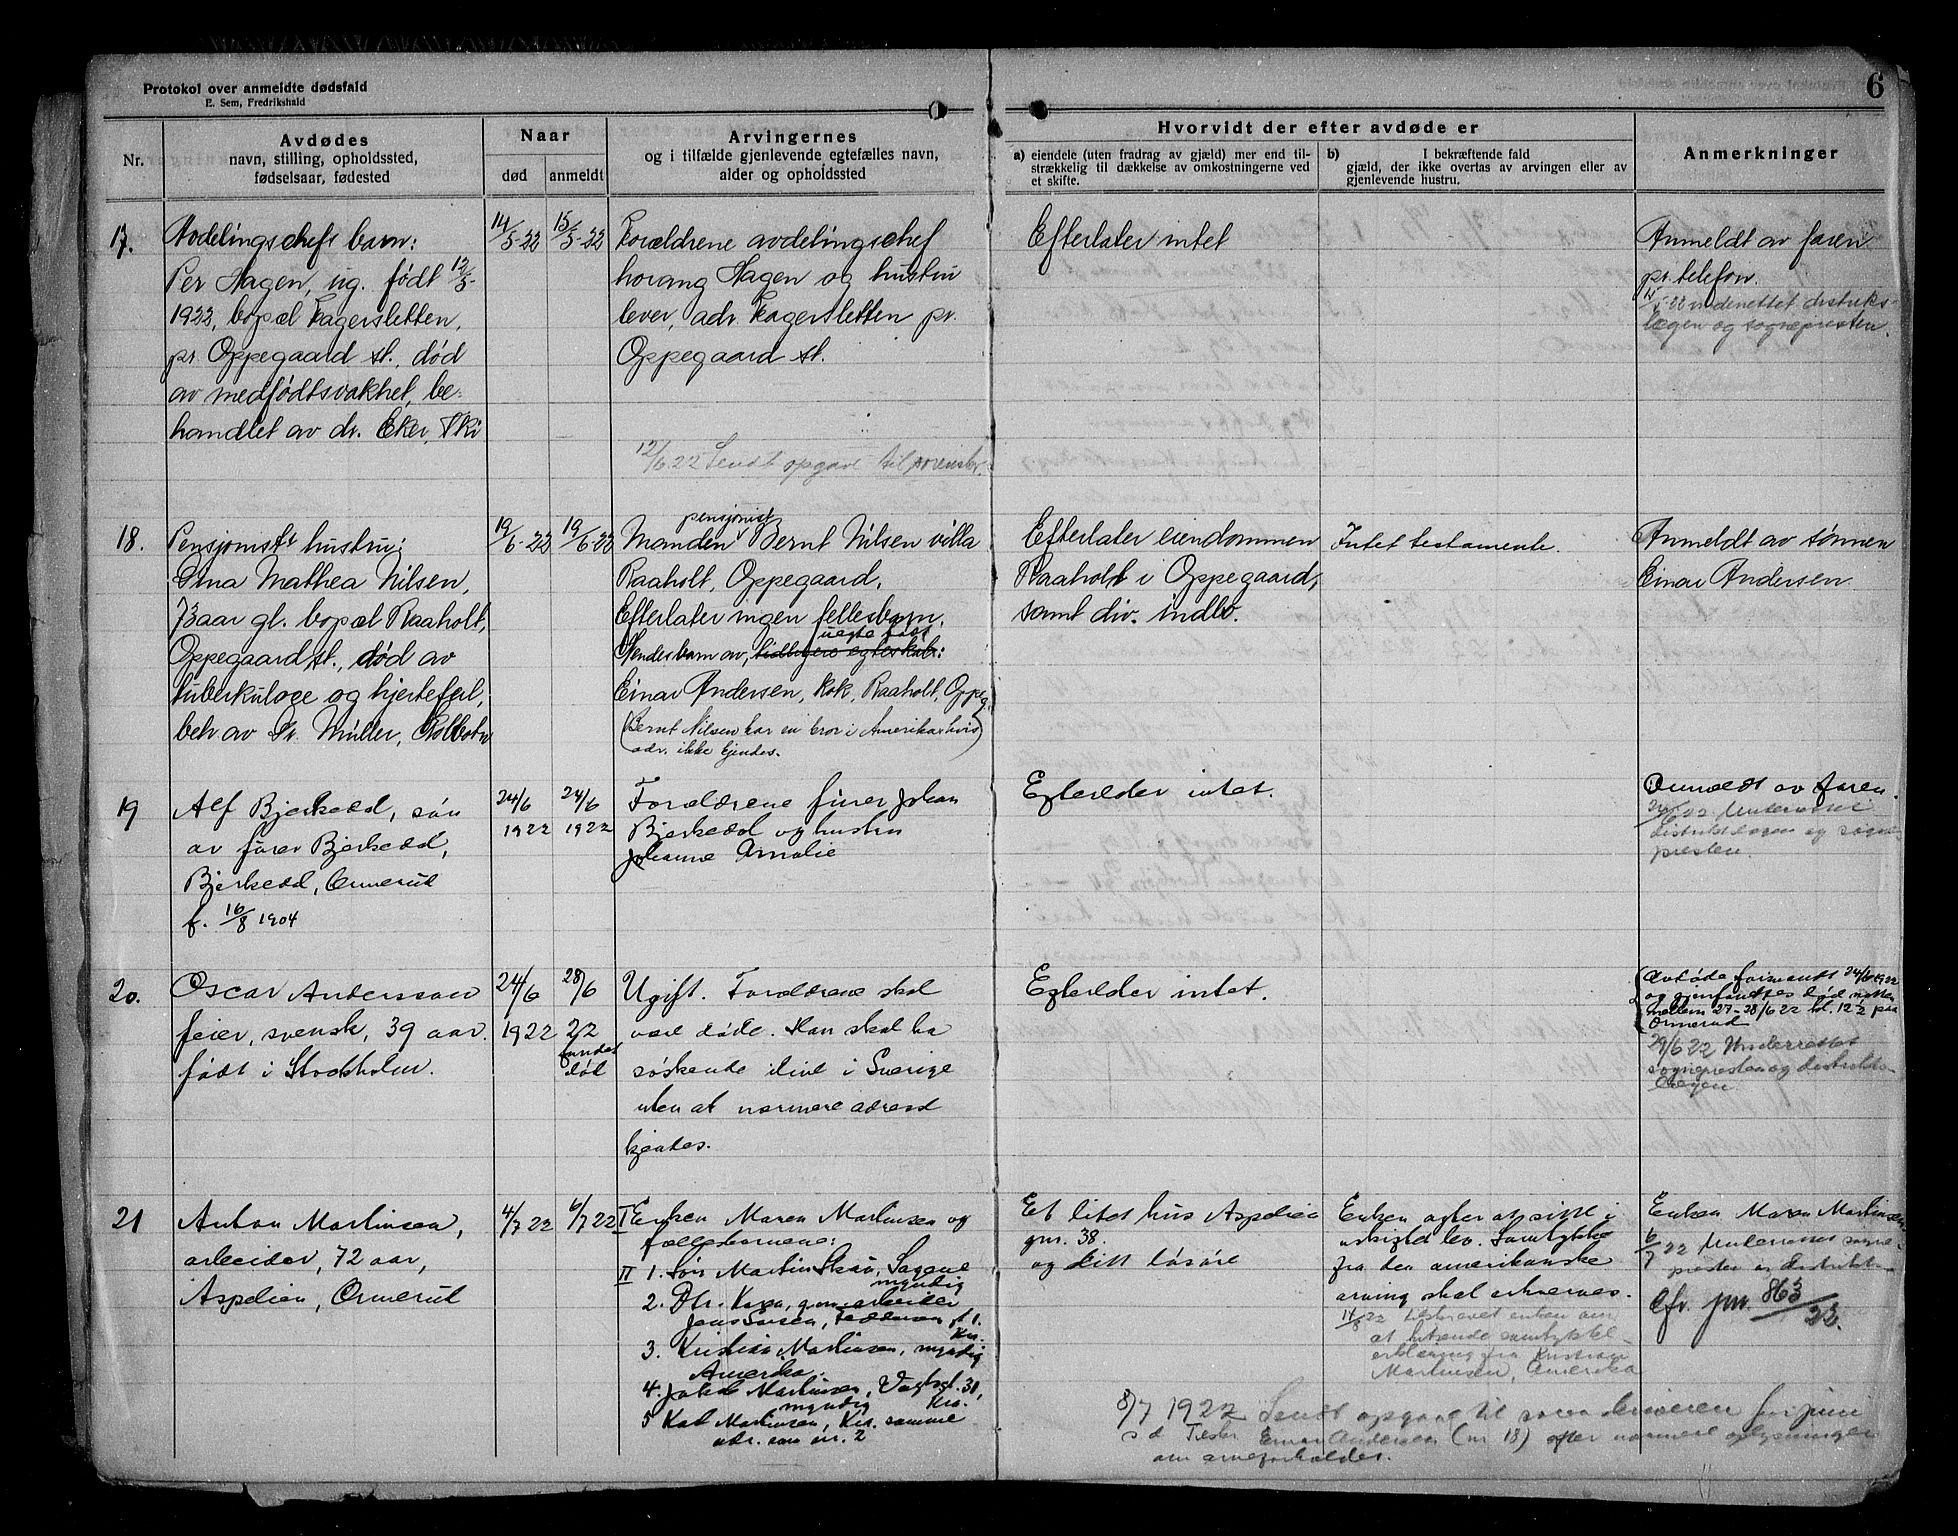 Protokol over anmeldte dødsfald
E. Sem, Fredrikshald
6
Nr.
Avdødes
navn, stilling, opholdssted,
fødselsaar, fødested
Naar
død
anmeldt
Arvingernes
og i tilfælde gjenlevende egtefælles navn,
alder og opholdssted
Hvorvidt der efter avdøde er
a) eiendele (uten fradrag av gjæld) mer end til-
strækkelig til dækkelse av omkostningerne ved
et skifte.
b) I bekræftende fald
gjæld, der ikke overtas av arvingen eller av
gjenlevende hustru.
Anmerkninger
17.
Avdelingschefs barn:
Per Hagen, ug. født 12/5-
1922, bopæl Fagersletten,
pr. Oppegaard st., død
av medfødtsvakhet, be-
handlet av dr. Eker, Ski
14/5-22
15/5-22
Forældrene avdelingschef
Hagen og hustru
lever, adr. Fagersletten pr.
Oppegaard st.
12/6 22 Sendt opgave til sorenskr.
Efterlater intet
Anmeldt av faren
pr. telefon.
15/5-22 underrettet distrikts-
lægen og sognepresten.
18.
Pensjonists hustru:
Gina Mathea Nilsen,
73aar gl. bopæl Raaholt,
Oppegaard st., død av
tuberkulose og hjertefeil,
beh av Dr. Müller, Kolbotn
19/6-22
19/6-22
pensjonist
Manden Bernt Nilsen villa
Raaholt, Oppegaard.
Efterlater ingen fellesbarn.
uegte født
Hendes barn av, tidligere egteskab:
Einar Andersen, kok, Raaholt, Oppeg.
(Bernt Nilsen har en bror i Amerika hvis
adr. ikke kjendes.)
Efterlater eiendommen
Raaholt i Oppegaard,
samt div. indbo.
Intet testamente.
Anmeldt av sønnen
Einar Andersen
19
Alf Bjerkedd, søn
av fører Bjerkedd,
Bjerkedd, Ormerud
f. 16/8 1904
24/6
1922
24/6
1922
Forældrene fører Johan
Bjerkedd og hustru
Johanne Amalie
Efterlader intet.
Anmeldt av faren.
24/6 22 Underrettet
distriktslægen og sogne-
presten.
20.
Oscar Andersson
feier, svensk, 39 aar.
født i Stockholm.
24/6
1922
28/6
22
fundet
død
Ugift. Forældrene skal
være døde. Han skal ha
søskende ilive i Sverige
uten at nærmere adresse
kjendes.
Efterlader intet.
Avdøde forsvandt 24/6 1922
og gjenfandtes død natten
mellem 27-28/6 22 kl. 12½ paa
Ormerud
29/6 22 Underrettet
sognepresten og distrikts-
lægen.
21
Anton Martinsen,
arbeider, 72 aar,
Aspelien, Ormerud
4/7 22
6/7 22
I Enken Maren Martinsen og
fællesbarnene:
II 1. Søn Martin Skau, Sagene
myndig
2. Dtr. Kaja, gm. arbeider
Jens
Kra.
3. Kristian Martinsen, myndig
Amerika.
4. Jakob Martinsen, Vogtsgt. 31,
myndig Kra.
5 Karl Martinsen, Kra. samme
adr. som nr. 2
Et litet hus Aspelien
gnr. 38.
og litt løsøre
Enken agter at sitte i
uskiftet bo. Samtykke
fra den amerikanske
arving skal erhverves.
14/8 22 enken om
at indsende samtykke-
erklæring fra Kristian
Martinsen, Amerika
Enken Maren Martinsen
6/7 22 Underrettet sogne-
presten og distrikts-
Cfr. jnr. 863/22.
8/7 1922 Sendt opgave til sorenskriveren for juni
s d Tilskr. Einar Andersen (nr 18) efter nærmere oplysninger
om arveforholdet.